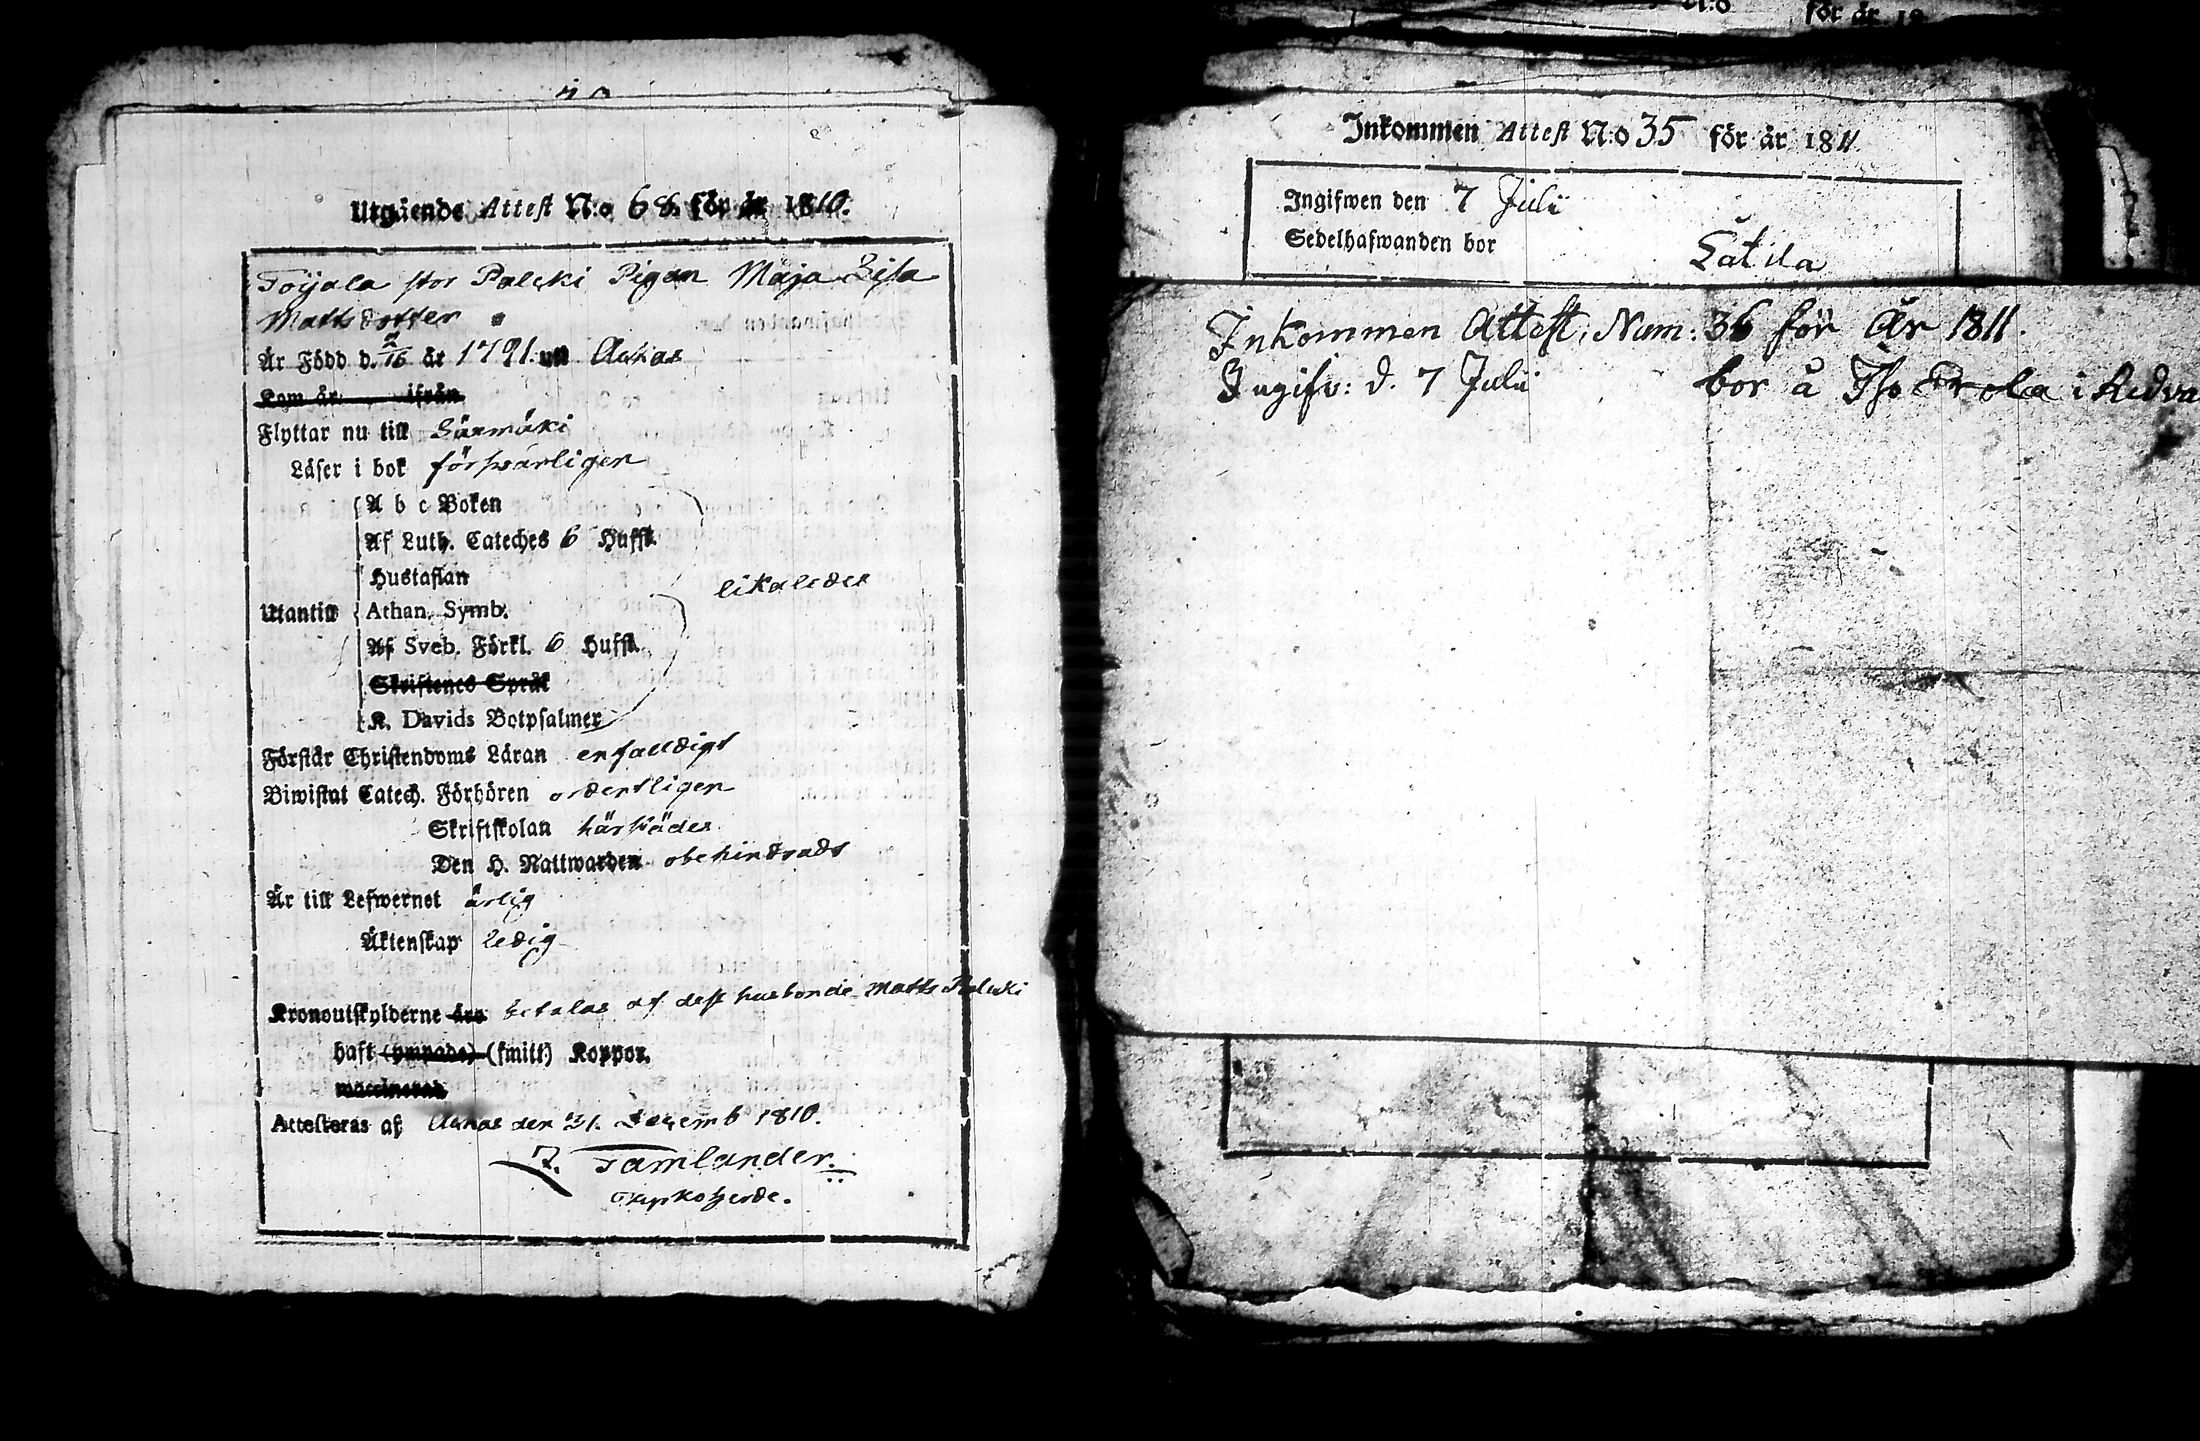 Utgående Attest N:o 68. för år 1810.
Toijala stor Palcki Pigan Maja Lisa
Mattsdotter
Är Född d. 2/16 år 1791. uti Ackas
Kom år ifrån
Flyttar nu till Säxmäki
Läser i bok försvarligen
A b c Boken
Af Luth. Cateches 6 Hufst.
Hustaflan
likaledes
Utantill Athan. Symb.
Af Sveb. Förkl. 6 Hufst.
Skriftenes Språk
K. Davids Botpsalmer
Förstår Christendoms Läran enfalldigt
Biwistat Catech. Förhören ordentligen
Skriftskolan härstädes
Den H. Nattwarden obehindradt
Är till Lefwernet ärlig
Äktenskap ledig
Kronoutskylderne äro betalas af dess husbonde Matts Palcki
haft (ympade) (smitt) Koppor.
vaccinerad
Attesteras af Ackas den 31. Decemb 1810.
J. Tamlander.
Kyrkoherde.
för år 18
Inkommen Attest N:o 35 för år 1811
Ingifwen den 7 Julii
Sedelhafwanden bor Låtila
Inkommen Attest, Num: 36 för År 1811.
Ingifv: d. 7 Julii bor å i